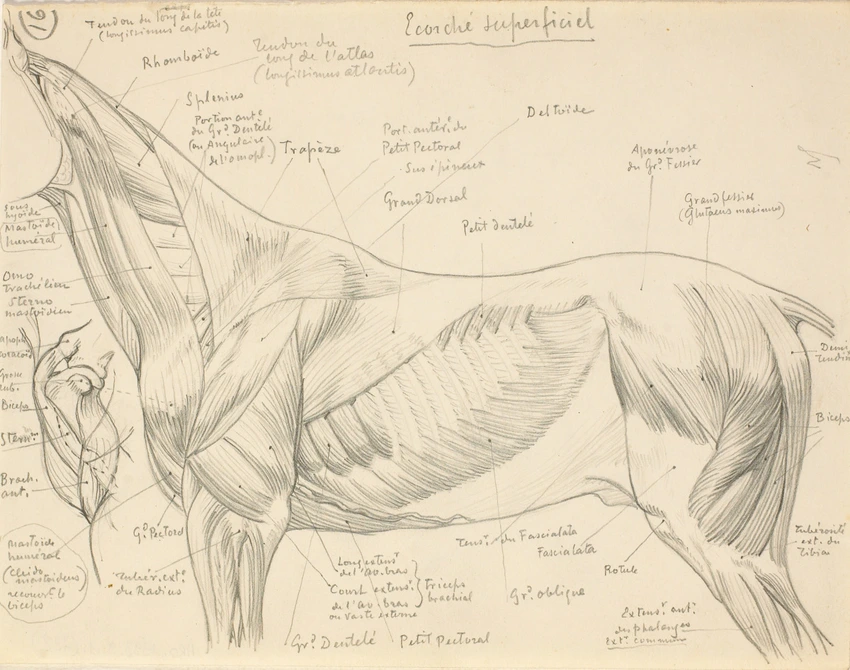 16
Ecorché superficiel
Tendon du long de la tête
(longissimus capitis)
Rhomboïde
Tendon du
long de l'atlas
(longissimus atlantis)
Splenius
Portion antre
du Grd Dentelé
(ou Angulaire
de l'omopl.)
Trapèze
Port. antérre du
Petit Pectoral
Sus épineux
Deltoïde
Grand Dorsal
Petit dentelé
Aponévrose
du Grd Fessier
Grand fessier
(Glutaeus maximus)
Sous
hyoïde
Mastoïdo
huméral
Omo
trachélien
Sterno
mastoïdien
Apoph.
coracoïd
Grosse
tub.
Biceps
Brach.
ant.
Demi
Tendin
Biceps
Mastoïdo
huméral
(Cleido
mastoïdeus)
recouvre le
biceps
Gd Pectoral
Tubér. exte
du Radius
Long extensr
de l'av. bras
Court extensr
de l'av. bras
ou vaste externe
Triceps
brachial
Grd Dentelé
Petit Pectoral
Tensr du Fascialata
Fascialata
Grd oblique
Rotule
Extensr ant.
des phalanges
Ext. commun
Tubérosité
ext. du
Tibia